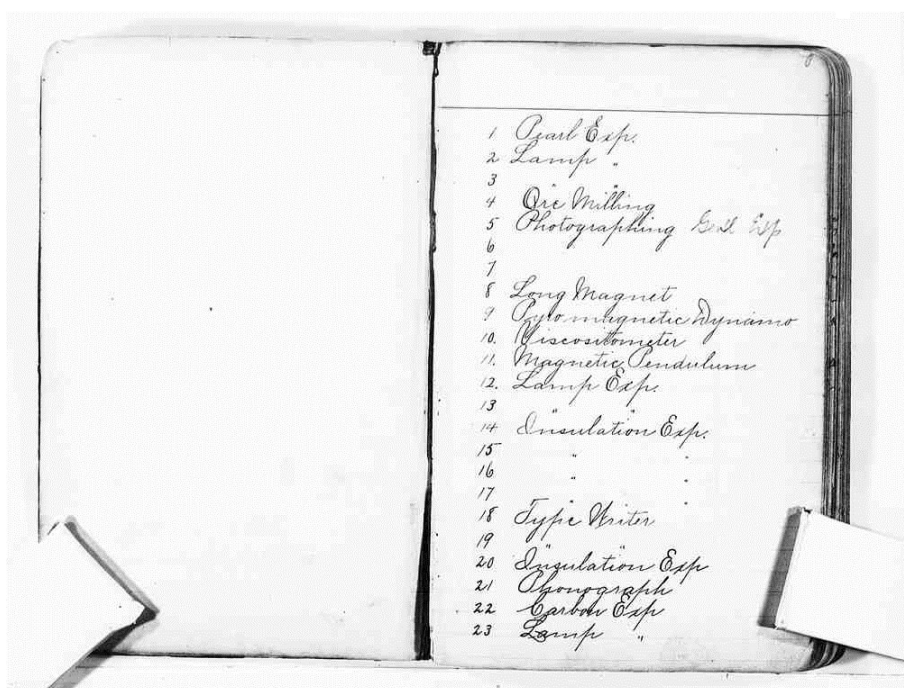 1 Pearl Exp.
2 Lamp "
3 " "
4 Ore Milling
5 Photographing Genl Exp
6
7
8 Long Magnet
9 Pyromagnetic Dynamo
10. Viscositometer
11. Magnetic Pendulum
12. Lamp Exp.
13 " "
14 Insulation Exp.
15 " "
16 " "
17 " "
18 Type Writer
19 " "
20 Insulation Exp
21 Phonograph
22 Carbon Exp
23 Lamp "